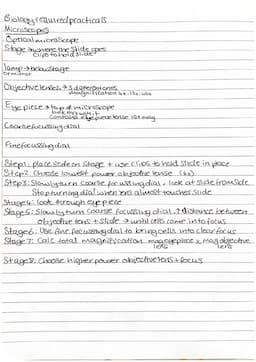 Biology required practicals
Microscopes
Optical microscope
Stage → where the slide goes
clips to hold slide
lamp → below stage
or mirror
Objective lenses → 3 different ones
magnification 4x, 10x, 40x
Eye piece → top of microscope
look through it
Contains eye piece lense 10x mag
Coarse focussing dial
Fine focussing dial
Step 1: place slide on stage + use clips to hold slide in place
Step 2: Choose lowest power objective lense (4x)
Step 3: Slowly turn coarse focussing dial, look at slide from side
Stop turning dial when lens almost touches slide
Stage 4: look through eye piece
Stage 5: Slowly turn coarse focussing dial. ↑ distance between
objective lens + slide → until cells come into focus
Stage 6: Use fine focussing dial to bring cells into clear focus
Stage 7: Calc total magnification mag eyepiece x mag objective
lens lens
Stage 8: Choose higher power objective lens + focus